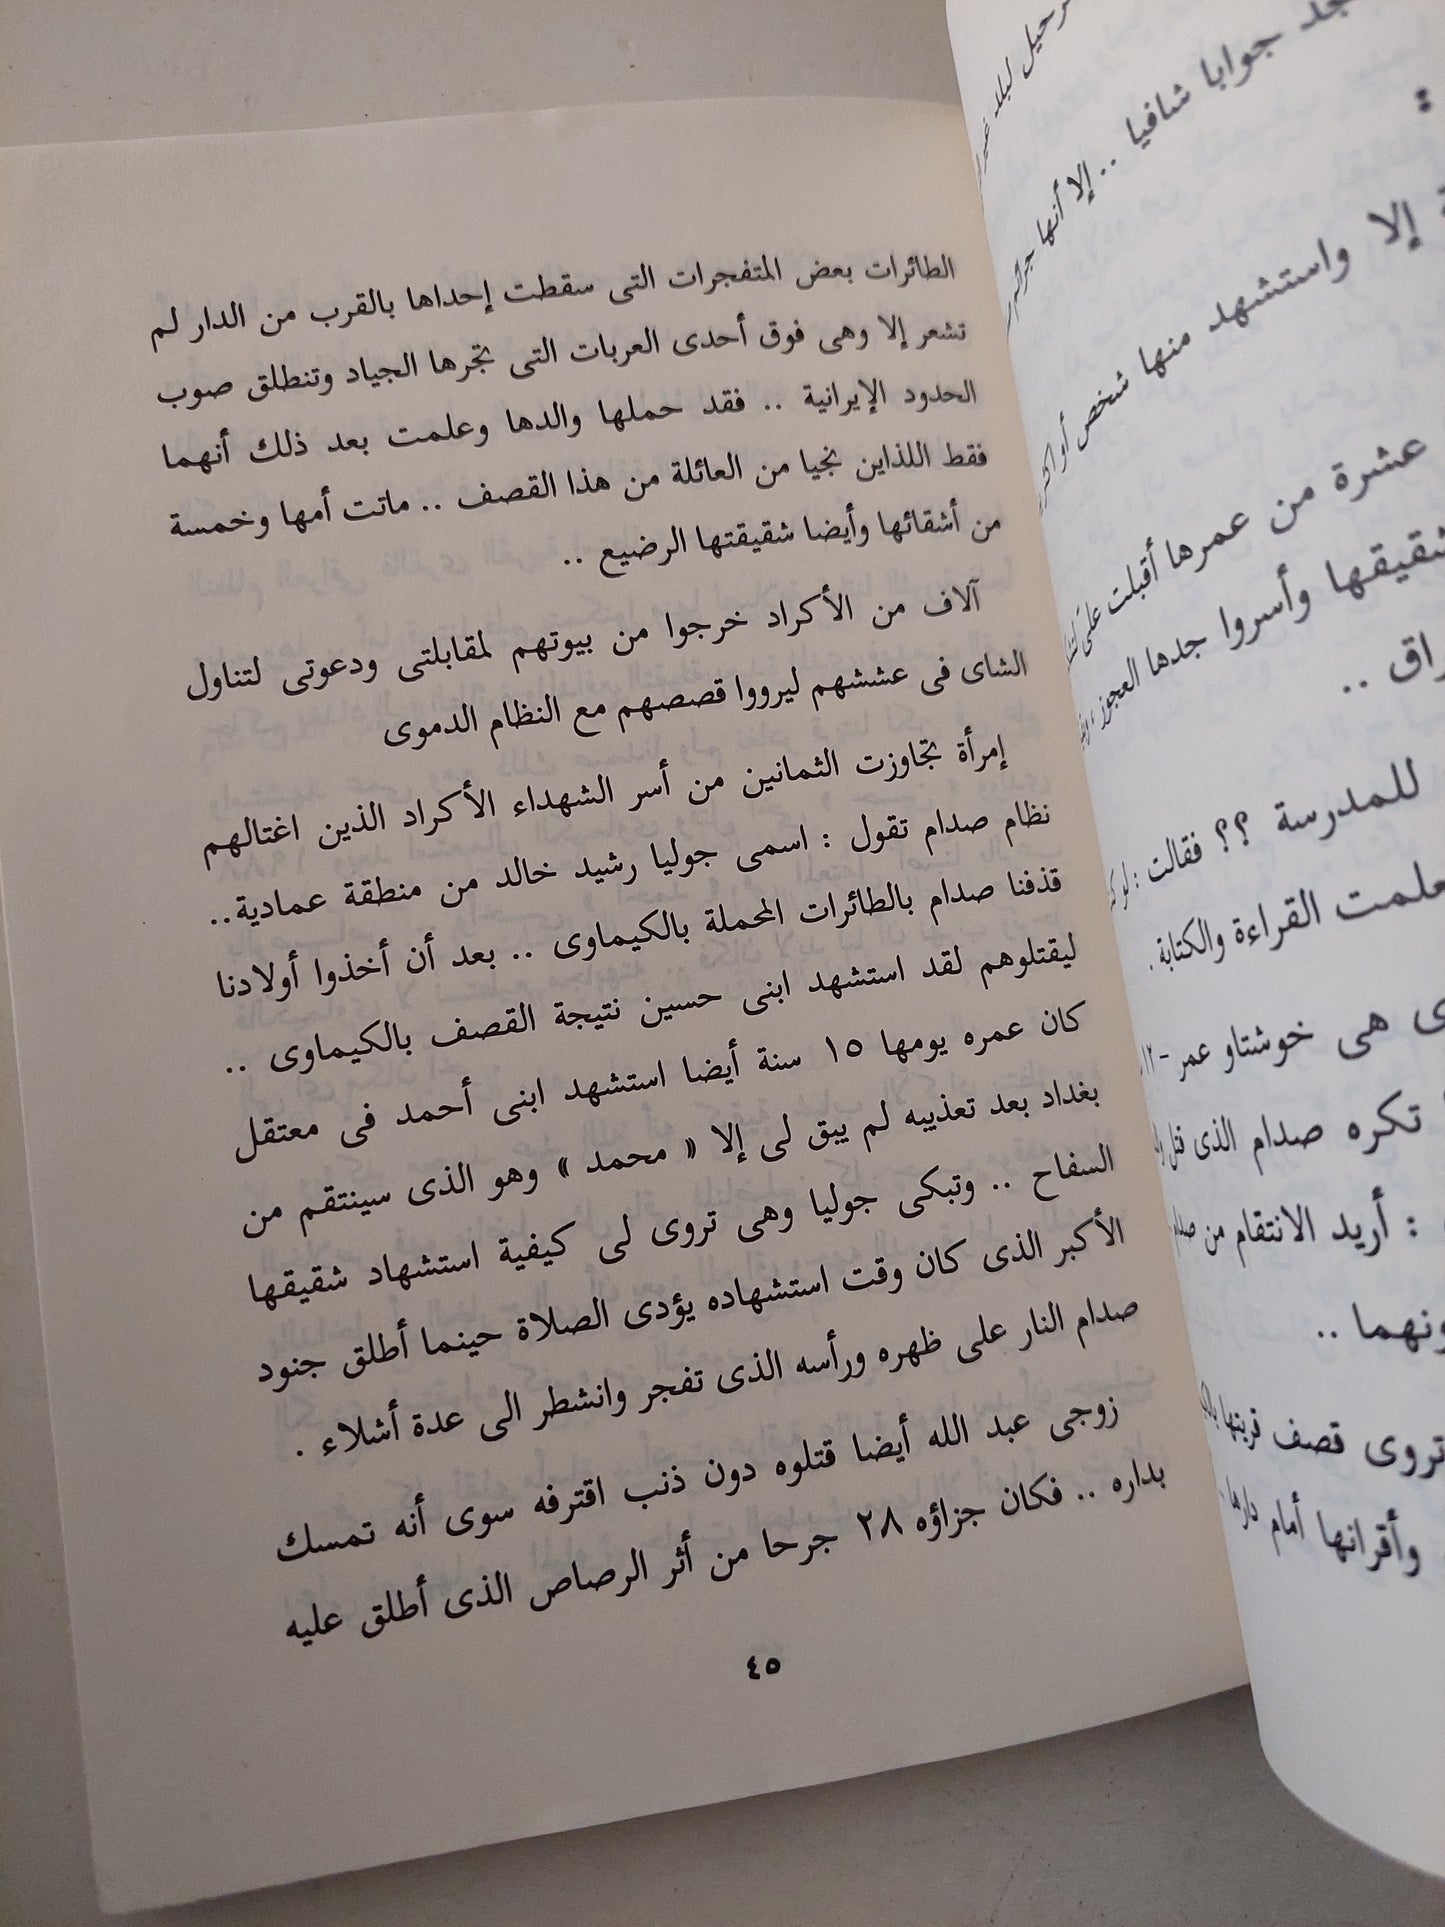 الطائرات بعض المتفجرات التى سقطت إحداها بالقرب من الدار لم
تشعر إلا وهى فوق أحدى العربات التى تجرها الجياد وتنطلق صوب
الحدود الإيرانية .. فقد حملها والدها وعلمت بعد ذلك أنهما
فقط اللذاين نجيا من العائلة من هذا القصف .. ماتت أمها وخمسة
من أشقائها وأيضا شقيقتها الرضيع ..
آلاف من الأكراد خرجوا من بيوتهم لمقابلتى ودعوتى لتناول
الشاى فى عششهم ليرووا قصصهم مع النظام الدموى
إمرأة تجاوزت الثمانين من أسر الشهداء الأكراد الذين اغتالهم
نظام صدام تقول : اسمى جوليا رشيد خالد من منطقة عمادية..
قذفنا صدام بالطائرات المحملة بالكيماوى .. بعد أن أخذوا أولادنا
ليقتلوهم لقد استشهد ابنى حسين نتيجة القصف بالكيماوى ..
كان عمره يومها ١٥ سنة أيضا استشهد ابنى أحمد فى معتقل
بغداد بعد تعذيبه لم يبق لى إلا « محمد » وهو الذى سينتقم من
السفاح .. وتبكى جوليا وهى تروى لى كيفية استشهاد شقيقها
الأكبر الذى كان وقت استشهاده يؤدى الصلاة حينما أطلق جنود
صدام النار على ظهره ورأسه الذى تفجر وانشطر الى عدة أشلاء .
زوجى عبد الله أيضا قتلوه دون ذنب اقترفه سوى أنه تمسك
بداره .. فكان جزاؤه ٢٨ جرحا من أثر الرصاص الذى أطلق عليه
٤٥
جوابا شافيا .. إلا أنها
إلا واستشهد منها شخص أو
عشرة من عمرها أقبلت على
وأسروا جدها العجوز
للمدرسة ؟؟ فقالت :
القراءة والكتابة .
هى خوشتاو عمر -١٢
تكره صدام الذى قتل
: أريد الانتقام من
تروى قصف قريتها
وأقرانها أمام دارها